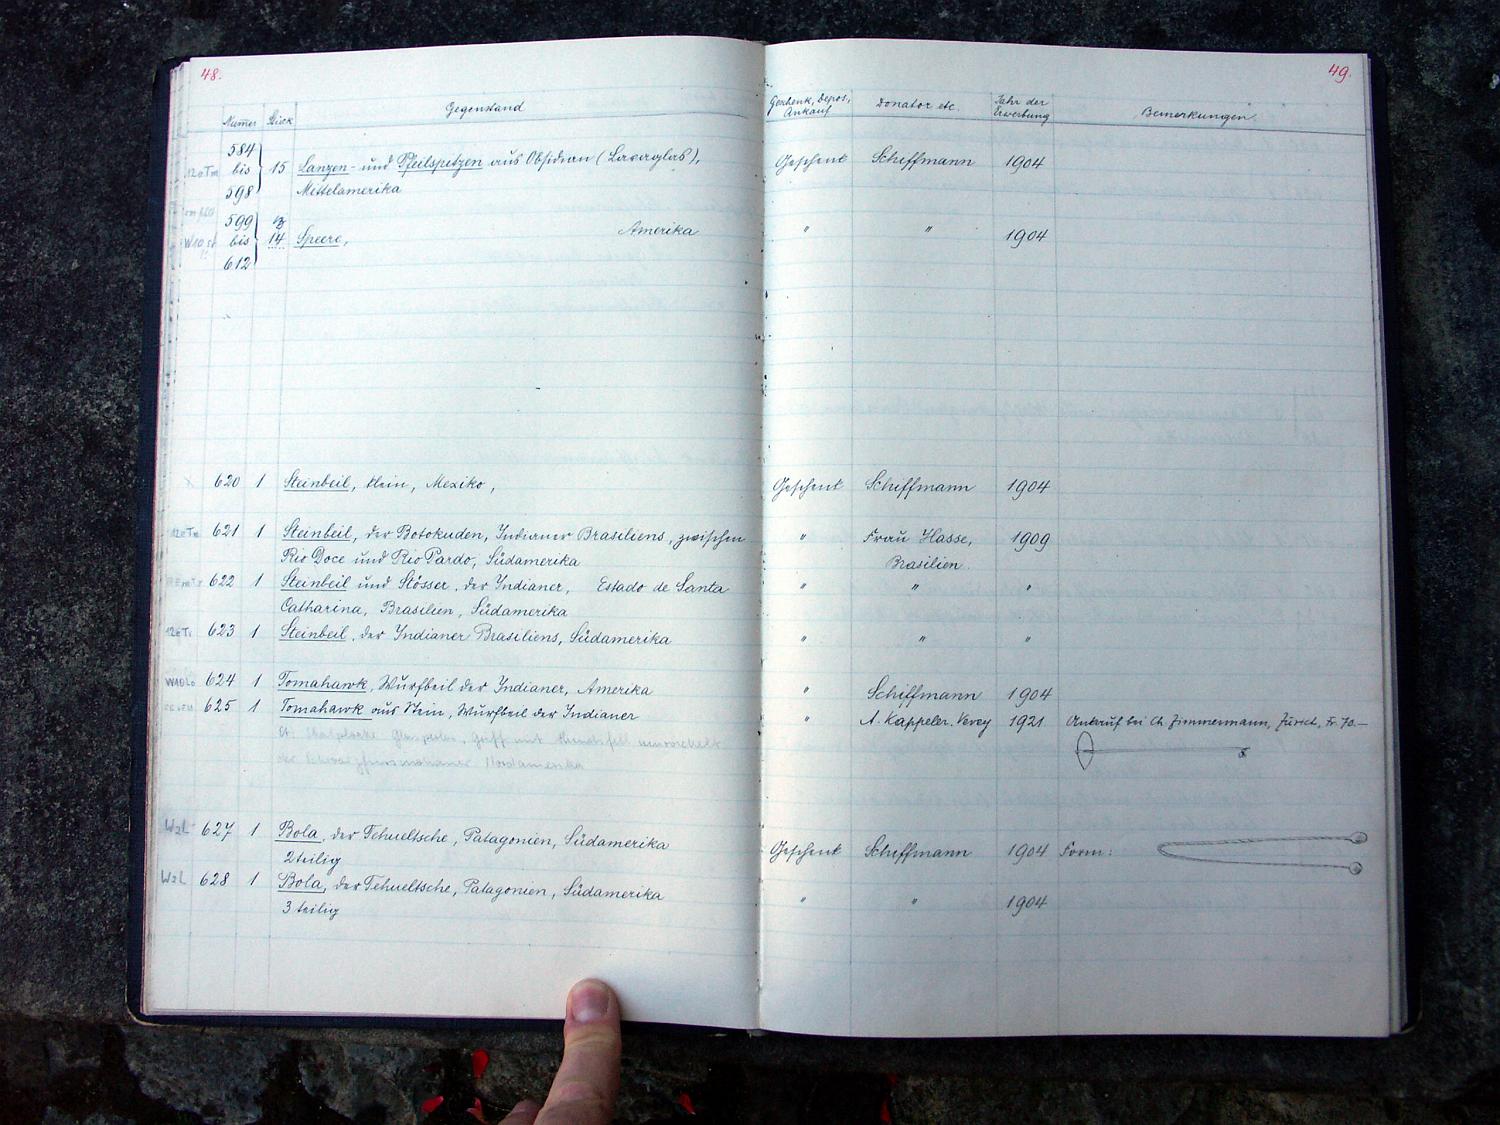 48.
49.
Numer Stück Gegenstand Geschenk, Depos, Ankauf Donator etc. Jahr der Erwerbung Bemerkungen
584
bis 15 Lanzen- und Pfeilspitzen aus Obsidian (Lavaglas), Geschenk Schiffmann 1904
598 Mittelamerika
599
bis 14 Speere, Amerika " " 1904
612
620 1 Steinbeil, klein, Mexiko, Geschenk Schiffmann 1904
621 1 Steinbeil, der Botokuden, Indianer Brasiliens, zwischen " Frau Hasse, 1909
Rio Doce und Rio Pardo, Südamerika Brasilien.
622 1 Steinbeil und Stösser, der Indianer, Estado de Santa " " "
Catharina, Brasilien, Südamerika
623 1 Steinbeil, der Indianer Brasiliens, Südamerika " " "
W10Lo 624 1 Tomahawk, Wurfbeil der Indianer, Amerika " Schiffmann 1904
625 1 Tomahawk aus Stein, Wurfbeil der Indianer " A. Kappeler. Verey 1921 Ankauf bei Ch. Zimmermann, Zürich, Fr. 70.—
Griff mit
der Nordamerika
W2L 627 1 Bola, der Tehueltsche, Patagonien, Südamerika
2teilig Geschenk Schiffmann 1904 Form:
W2L 628 1 Bola, der Tehueltsche, Patagonien, Südamerika
3 teilig " " 1904